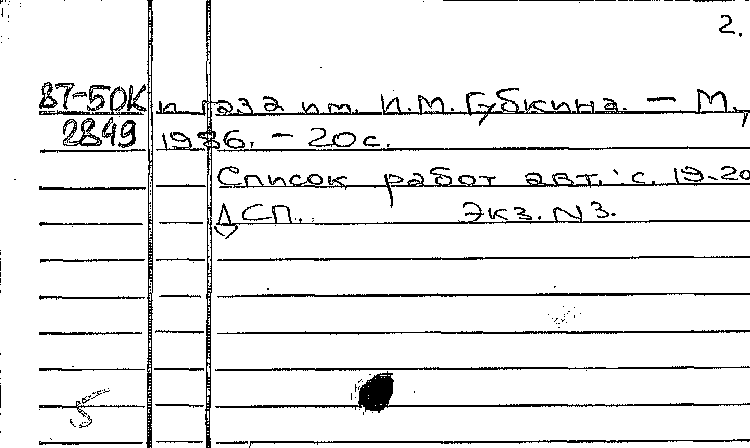 2.
87-5ДК и газа им. И.М. Губкина. — М.,
2849 1986. - 20 с.
Список работ авт.: с. 19-20
ДСП. Экз. N3.
5